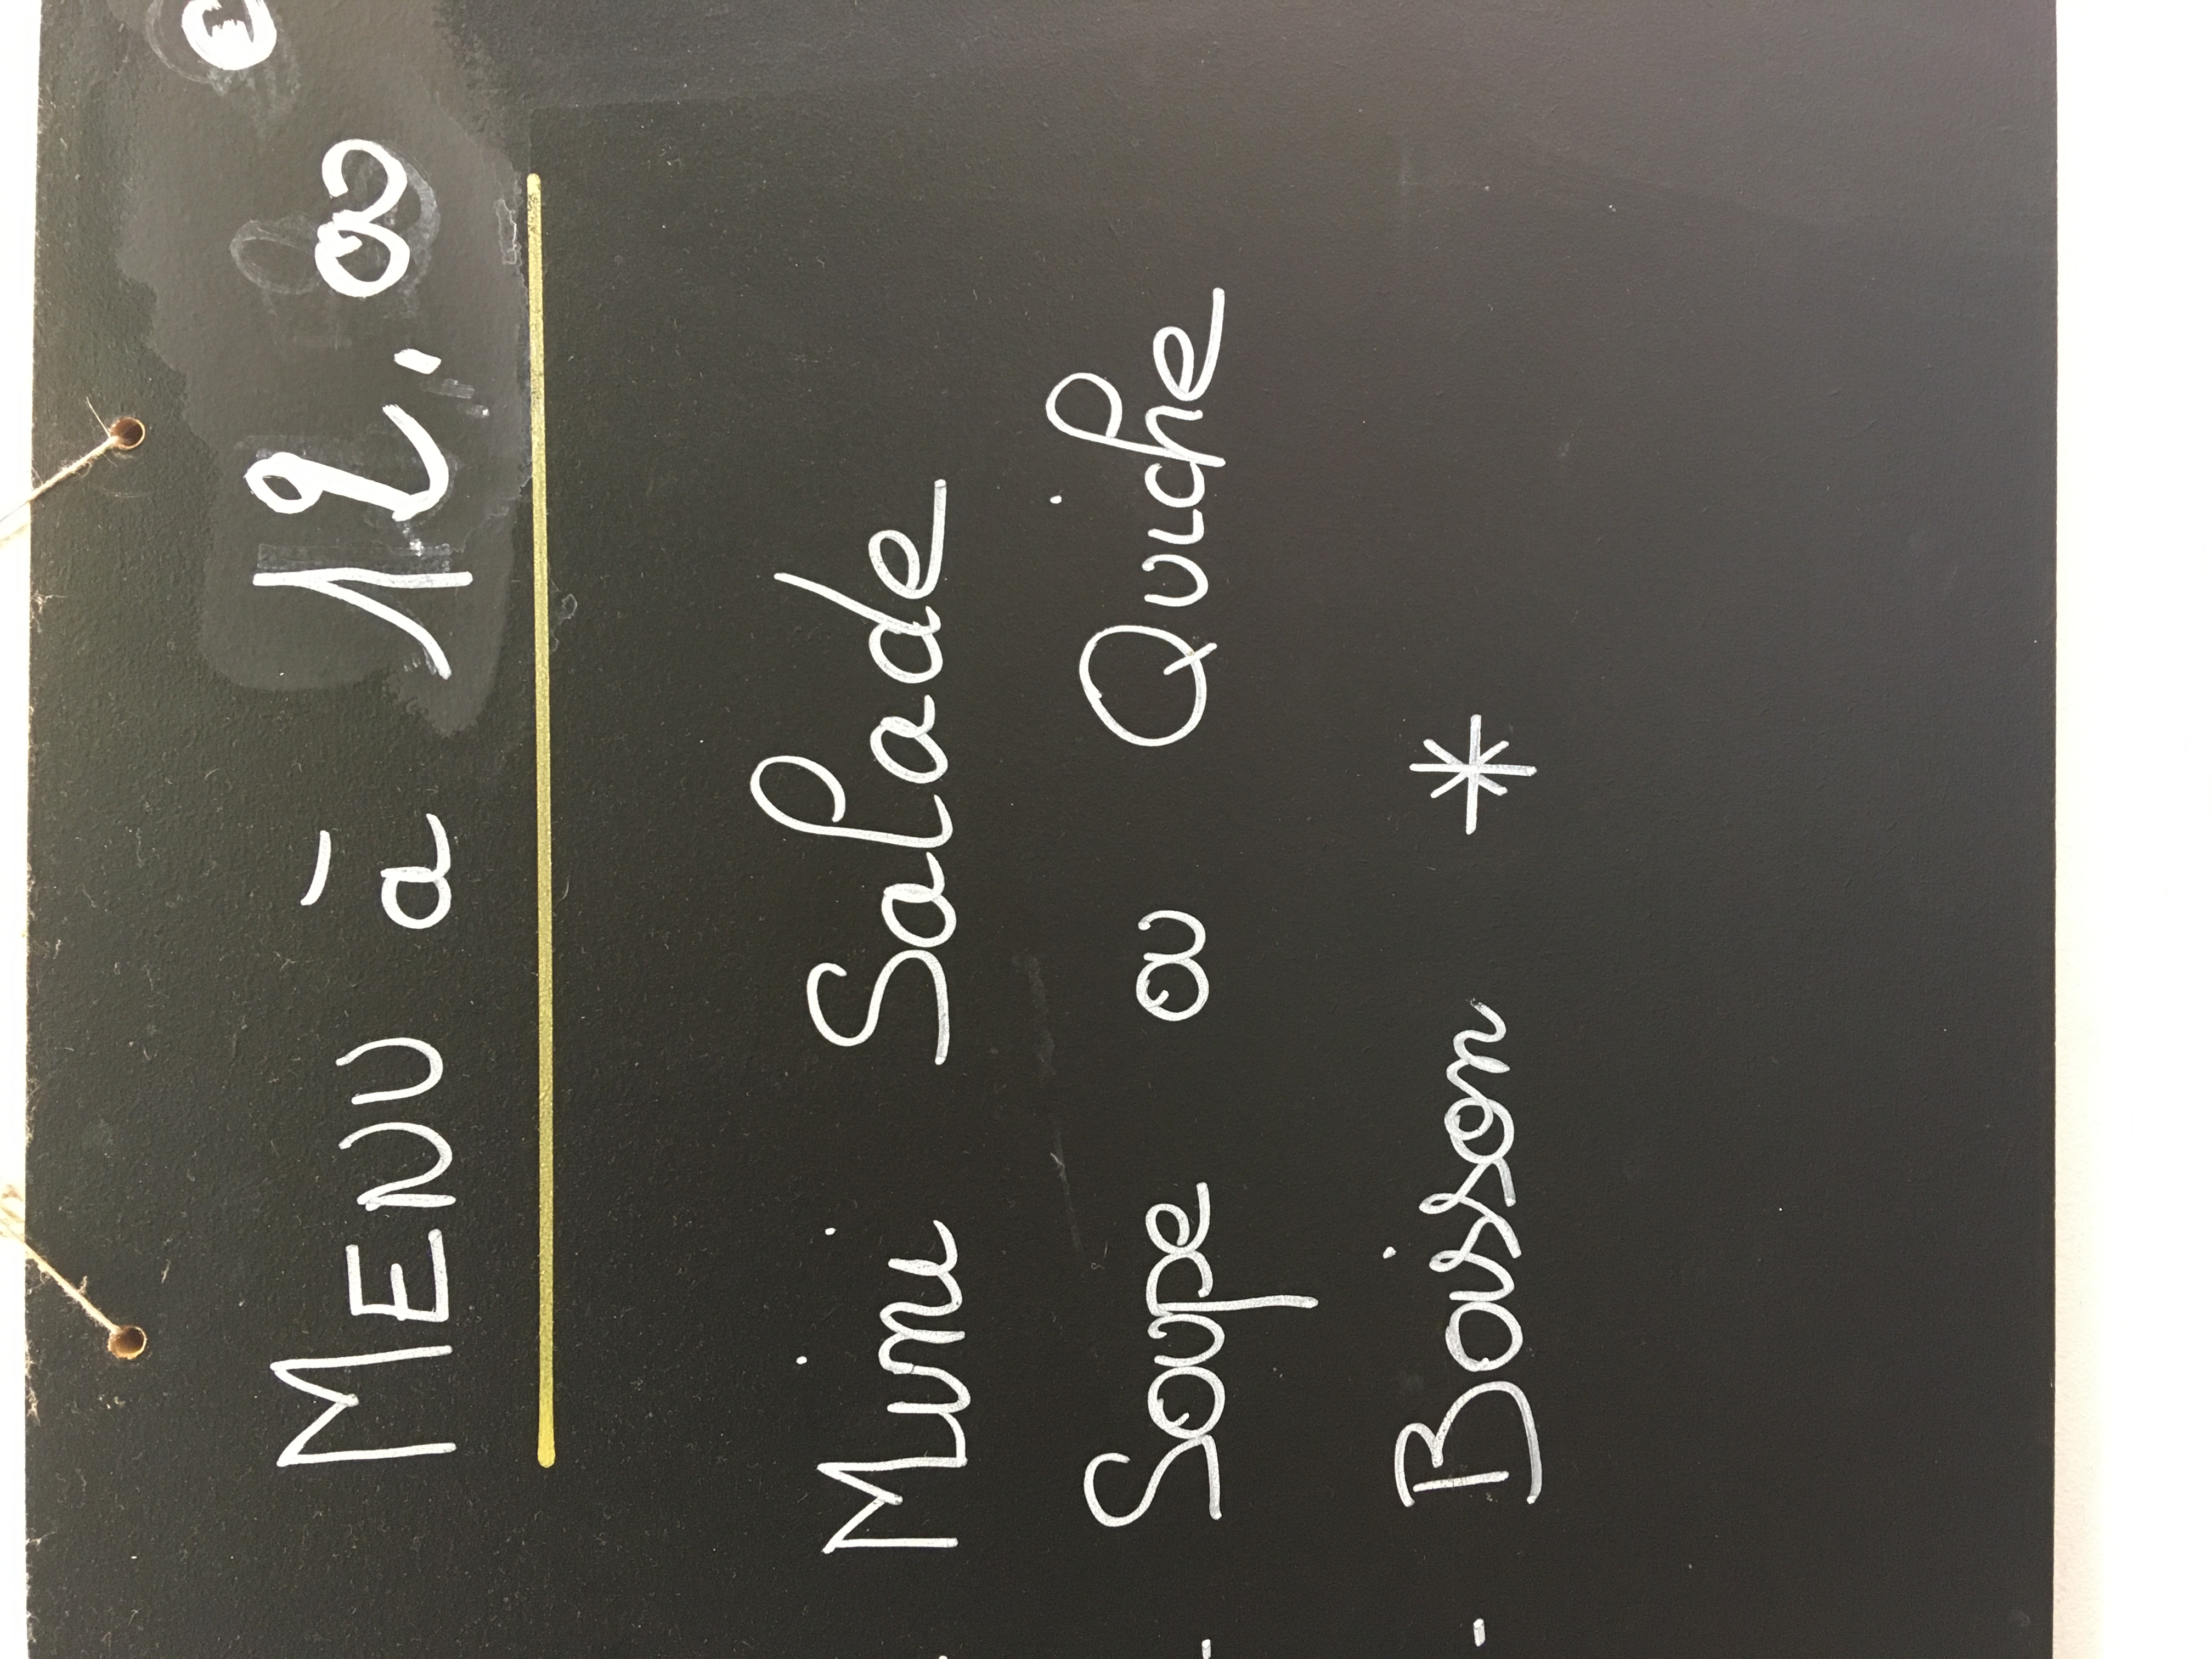 MENU à 12,00
- Mini Salade
- Soupe ou Quiche
- Boisson *